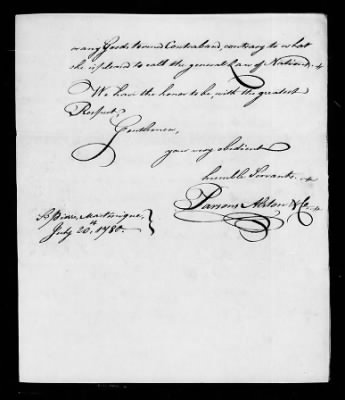 or any Goods termed Contraband, contrary to what
she is pleased to call the general Law of Nations.
We have the honor to be, with the greatest
Respect,
Gentlemen,
your very obedient
humble Servants.
Parsons Alston & Co.
St. Pierre, Martinique,
July 20, 1780.